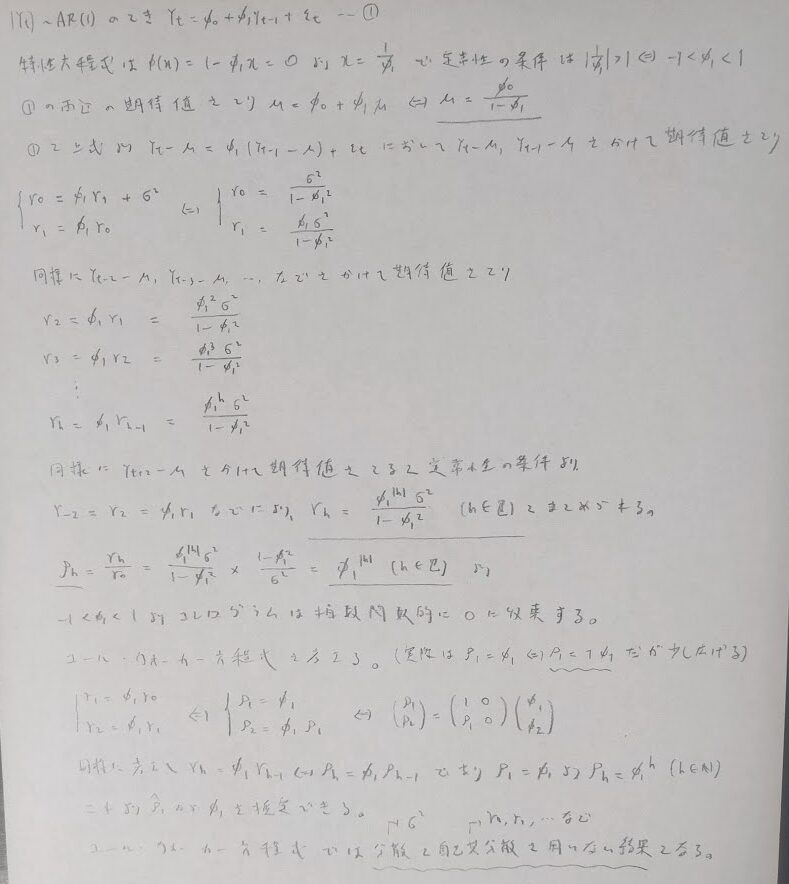 {Yt}~AR(1) のとき Yt = φ0 + φ1Yt-1 + εt … ①
特性方程式は φ(x) = 1 - φ1x = 0 より x = 1/φ1 で定常性の条件は |1/φ1| > 1 ⇔ -1 < φ1 < 1
①の両辺の期待値をとり μ = φ0 + φ1μ ⇔ μ = φ0/(1-φ1)
①と上式より Yt-μ = φ1(Yt-1-μ) + εt において Yt-μ, Yt-1-μ をかけて期待値をとり
{ r0 = φ1r1 + σ² ⇔ { r0 = σ²/(1-φ1²)
r1 = φ1r0 r1 = φ1σ²/(1-φ1²)
同様に Yt-2-μ, Yt-3-μ, …, などをかけて期待値をとり
r2 = φ1r1 = φ1²σ²/(1-φ1²)
r3 = φ1r2 = φ1³σ²/(1-φ1²)
⋮
rh = φ1rh-1 = φ1^hσ²/(1-φ1²)
同様に Yt+2-μ をかけて期待値をとると定常性の条件より
r-2 = r2 = φ1r1 などにより, rh = φ1^|h|σ²/(1-φ1²) (h∈ℤ) とまとめられる。
ρh = rh/r0 = φ1^|h|σ²/(1-φ1²) × (1-φ1²)/σ² = φ1^|h| (h∈ℤ) より
-1<φ1<1 より コレログラムは指数関数的に 0 に収束する。
ユール・ウォーカー方程式を考える。(実際は ρ1 = φ1 ⇔ ρ1 = 1φ1 だが少し広げる)
{ r1 = φ1r0 ⇔ { ρ1 = φ1 ⇔ (ρ1 ρ2) = (1 0 ρ1 0)(φ1 φ2)
r2 = φ1r1 ρ2 = φ1ρ1
同様に考えて rh = φ1rh-1 ⇔ ρh = φ1ρh-1 であり ρ1 = φ1 より ρh = φ1^h (h∈ℕ)
これより ρ̂1 から φ1 を推定できる。
σ² r0, r1, … など
ユール・ウォーカー方程式では分散と自己共分散を用いない結果となる。